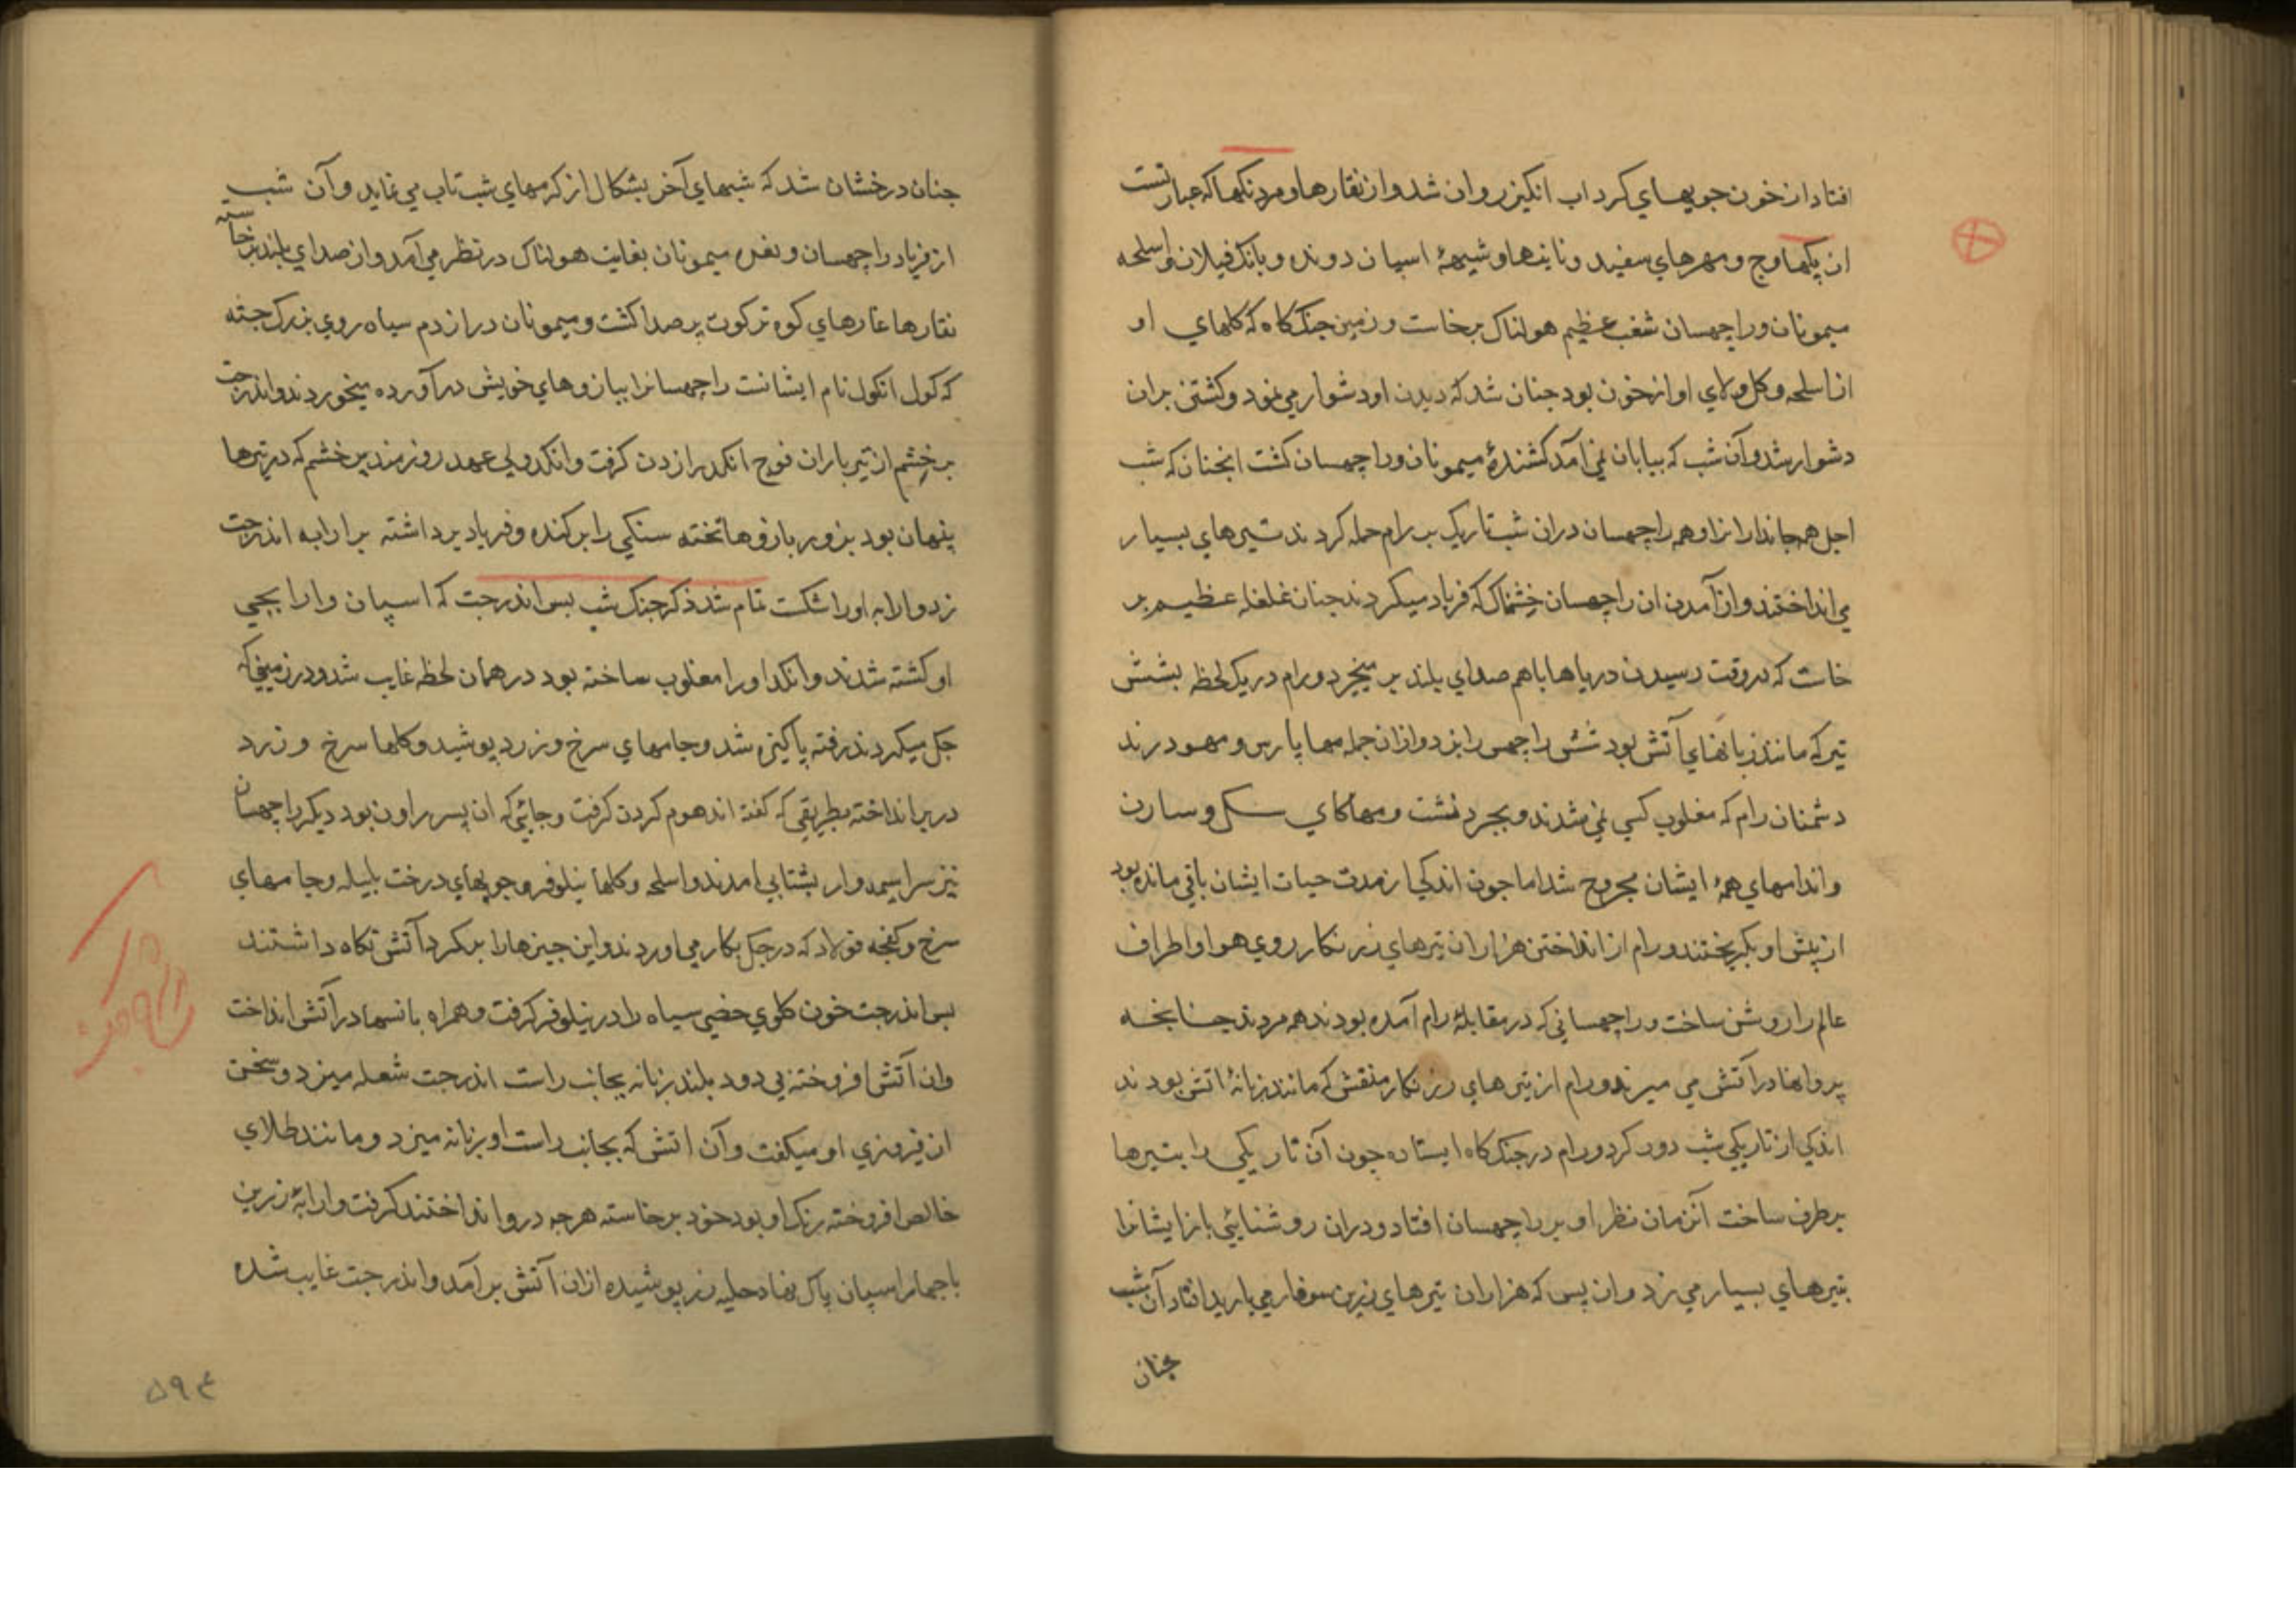 افتاد از خون جویهای کرداب انکیز روان شد و از نقارها و مردنکها که عبارتست
از پکهاوج و مهرهای سفید و نایها و شیههٔ اسپان دونده و بانک فیلان و اسلحه
میمونان و راچهسان شغب عظیم هولناک برخاست و زمین جنک کاه که کلهای او
از اسلحه و کل و لای او از خون بود جنان شد که دیدن او دشوار می نمود و کشتن بران
دشوار شد و آن شب که بپایان نمی آمد کشندهٔ میمونان و راچهسان کشت انجنان که شب
اجل همه جانداران را و همه راچهسان دران شب تاریک بر رام حمله کردند تیرهای بسیار
می انداختند و از آمدن ان راچهسان خشمناک که فریاد میکردند جنان غلغله عظیم بر
خاست که در وقت رسیدن دریاها باهم صدای بلند بر میخیزد و رام در یک لحظه بشش
تیر که مانند زبانهای آتش بود شش راچهس را بزد و ازان جمله مهاپارس و مهودر ند
دشمنان رام که مغلوب کسی نمی شدند و بجردنشت و مهاکای سکل و سارن
و اندامهای همهٔ ایشان مجروح شد اما جون اندکی از مدت حیات ایشان باقی مانده بود
از پیش او بکریختند و رام از انداختن هزاران تیرهای زرنکار روی هوا و اطراف
عالم را روشن ساخت و راچهسانی که در مقابلهٔ رام آمده بودند همه مردند جنانجه
پروانها در آتش می میرند و رام از تیرهای زرنکار منقش که مانند زبانهٔ اتش بودند
اندکی از تاریکی شب دور کرد و رام در جنک کاه ایستاده چون آن تاریکی را بتیرها
برطرف ساخت آنزمان نظر او بر راچهسان افتاد و دران روشنائی باز ایشانرا
بتیرهای بسیار می زد و ازان پس که هزاران تیرهای زرین سوفار می بارید افتاد آن شب
جنان
جنان درخشان شد که شبهای آخر بشکال از کرمهای شب تاب می نماید و آن شب
از فریاد راچهسان و نعره میمونان بغایت هولناک در نظر می آمد و از صدای بلند برخاسته
نقارها غارهای کوه ترکوت پر صدا کشت و میمونان دراز دم سیاه روی بزرک جثه
که کول انکول نام ایشانست راچهسانرا ببازوهای خویش در آورده میخوردند و اندرجت
بر خشم از تیر باران فوج انکد را زدن کرفت و انکد ولی عهد روزمند پر خشم که در تیرها
پنهان بود بزور بازوها تخته سنکی را برکنده و فریاد برداشته بر ارابه اندرجت
زد و ارابه او را شکست تمام شد ذکر جنک شب بس اندرجت که اسپان و ارابجی
او کشته شدند و انکد او را مغلوب ساخته بود در همان لحظه غایب شد و در زمینی که
جک میکردند رفته پاکیزه شد و جامهای سرخ و زرد پوشید و کلها سرخ و زرد
در بر انداخته بطریقی که کفته اند هوم کردن کرفت و جائی که ان پسر راون بود دیکر راچهسان
نیز سراسیمه وار بشتابی امدند و اسلحه و کلها نیلوفر و جوبهای درخت بلیله و جامهای
سرخ و کفجه فولاد که در جک بکار می اوردند و این جیزها را بر کرد آتش نکاه داشتند
بس اندرجت خون کلوی خصی سیاه را در نیلوفر کرفت و همراه بانسها در آتش انداخت
وان آتش افروخته بی دود بلند زبانه بجانب راست اندرجت شعله میزد و سخن
از فیروزی او میکفت و آن اتش که بجانب راست او زبانه میزد و مانند طلای
خالص افروخته رنک او بود خود برخاسته هرجه در و انداختند کرفت و ارابهٔ زرین
با جهار اسپان پاک نهاد حلیه زر پوشیده ازان آتش برآمد و اندرجت غایب شده
۵۹۴